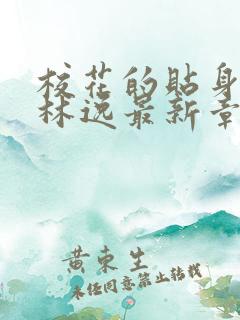 校花的贴身
林逸最新章
黄东生
未经同意禁止转载